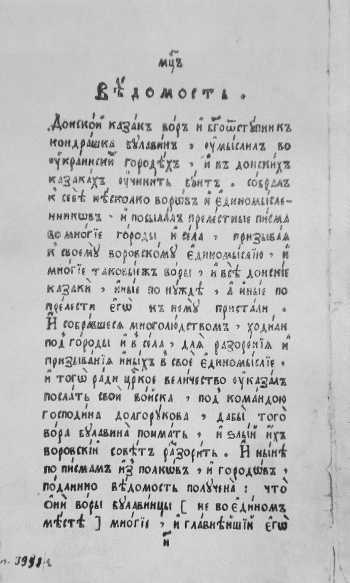 мцⷭ҇ъ
Вѣ́домость .
Донско́й каза́къ во́ръ и҆ бг҃оѿсту́пникъ
кондра́шка була́винъ , ᲂу҆мы́слилъ во
ᲂу҆кра́инскиⷯ городѣ́хъ , и҆ въ донски́хъ
каза́кахъ ᲂу҆чини́ть бу́нтъ . собра́лъ
къ себѣ̀ нѣ́сколько воро́въ и҆ є҆диномы́сле-
нниковъ . и҆ посыла́лъ преле́стные пи́сма
во мно́гїе го́роды и҆ се́ла , призыва́ѧ
къ своемꙋ̀ воровско́мꙋ є҆диномы́слїю , и҆
мно́гїе таковы́ежъ во́ры , и҆ всѣ̀ донскі́е
казакѝ , и҆ны́е по нꙋ́ждѣ , а҆ и҆ны́е по
пре́лести є҆гѡ̀ къ немꙋ̀ приста́ли .
И҆ собра́вшесѧ многолю́дствомъ , ходи́ли
под̾ го́роды и҆ в̾ се́ла , для разоре́нїѧ и҆
призыва́нїѧ и҆ны́хъ въ своѐ є҆диномы́слїе .
и҆ тогѡ̀ ра́ди цр҃кое вели́чество ᲂу҆каза́лъ
посла́ть своѝ во́йска , под̾ кома́ндою
господи́на долгорꙋ́кова , дабы̀ того̀
во́ра бꙋла́вина пойма́ть , и҆ ѕлы́й и҆́хъ
воровскі́й совѣ́тъ разори́ть . И҆ ны́нѣ
по пи́смамъ и҆з̾ полко́въ , и҆ городѡ́въ ,
подли́нно вѣ́домость полꙋ́чена : что̀
ѻ҆́ній во́ры бꙋла́винцы [ не во є҆ди́номъ
мѣ́стѣ ] мно́гїе , и҆ главнѣ́йшїй є҆гѡ̀
и҆